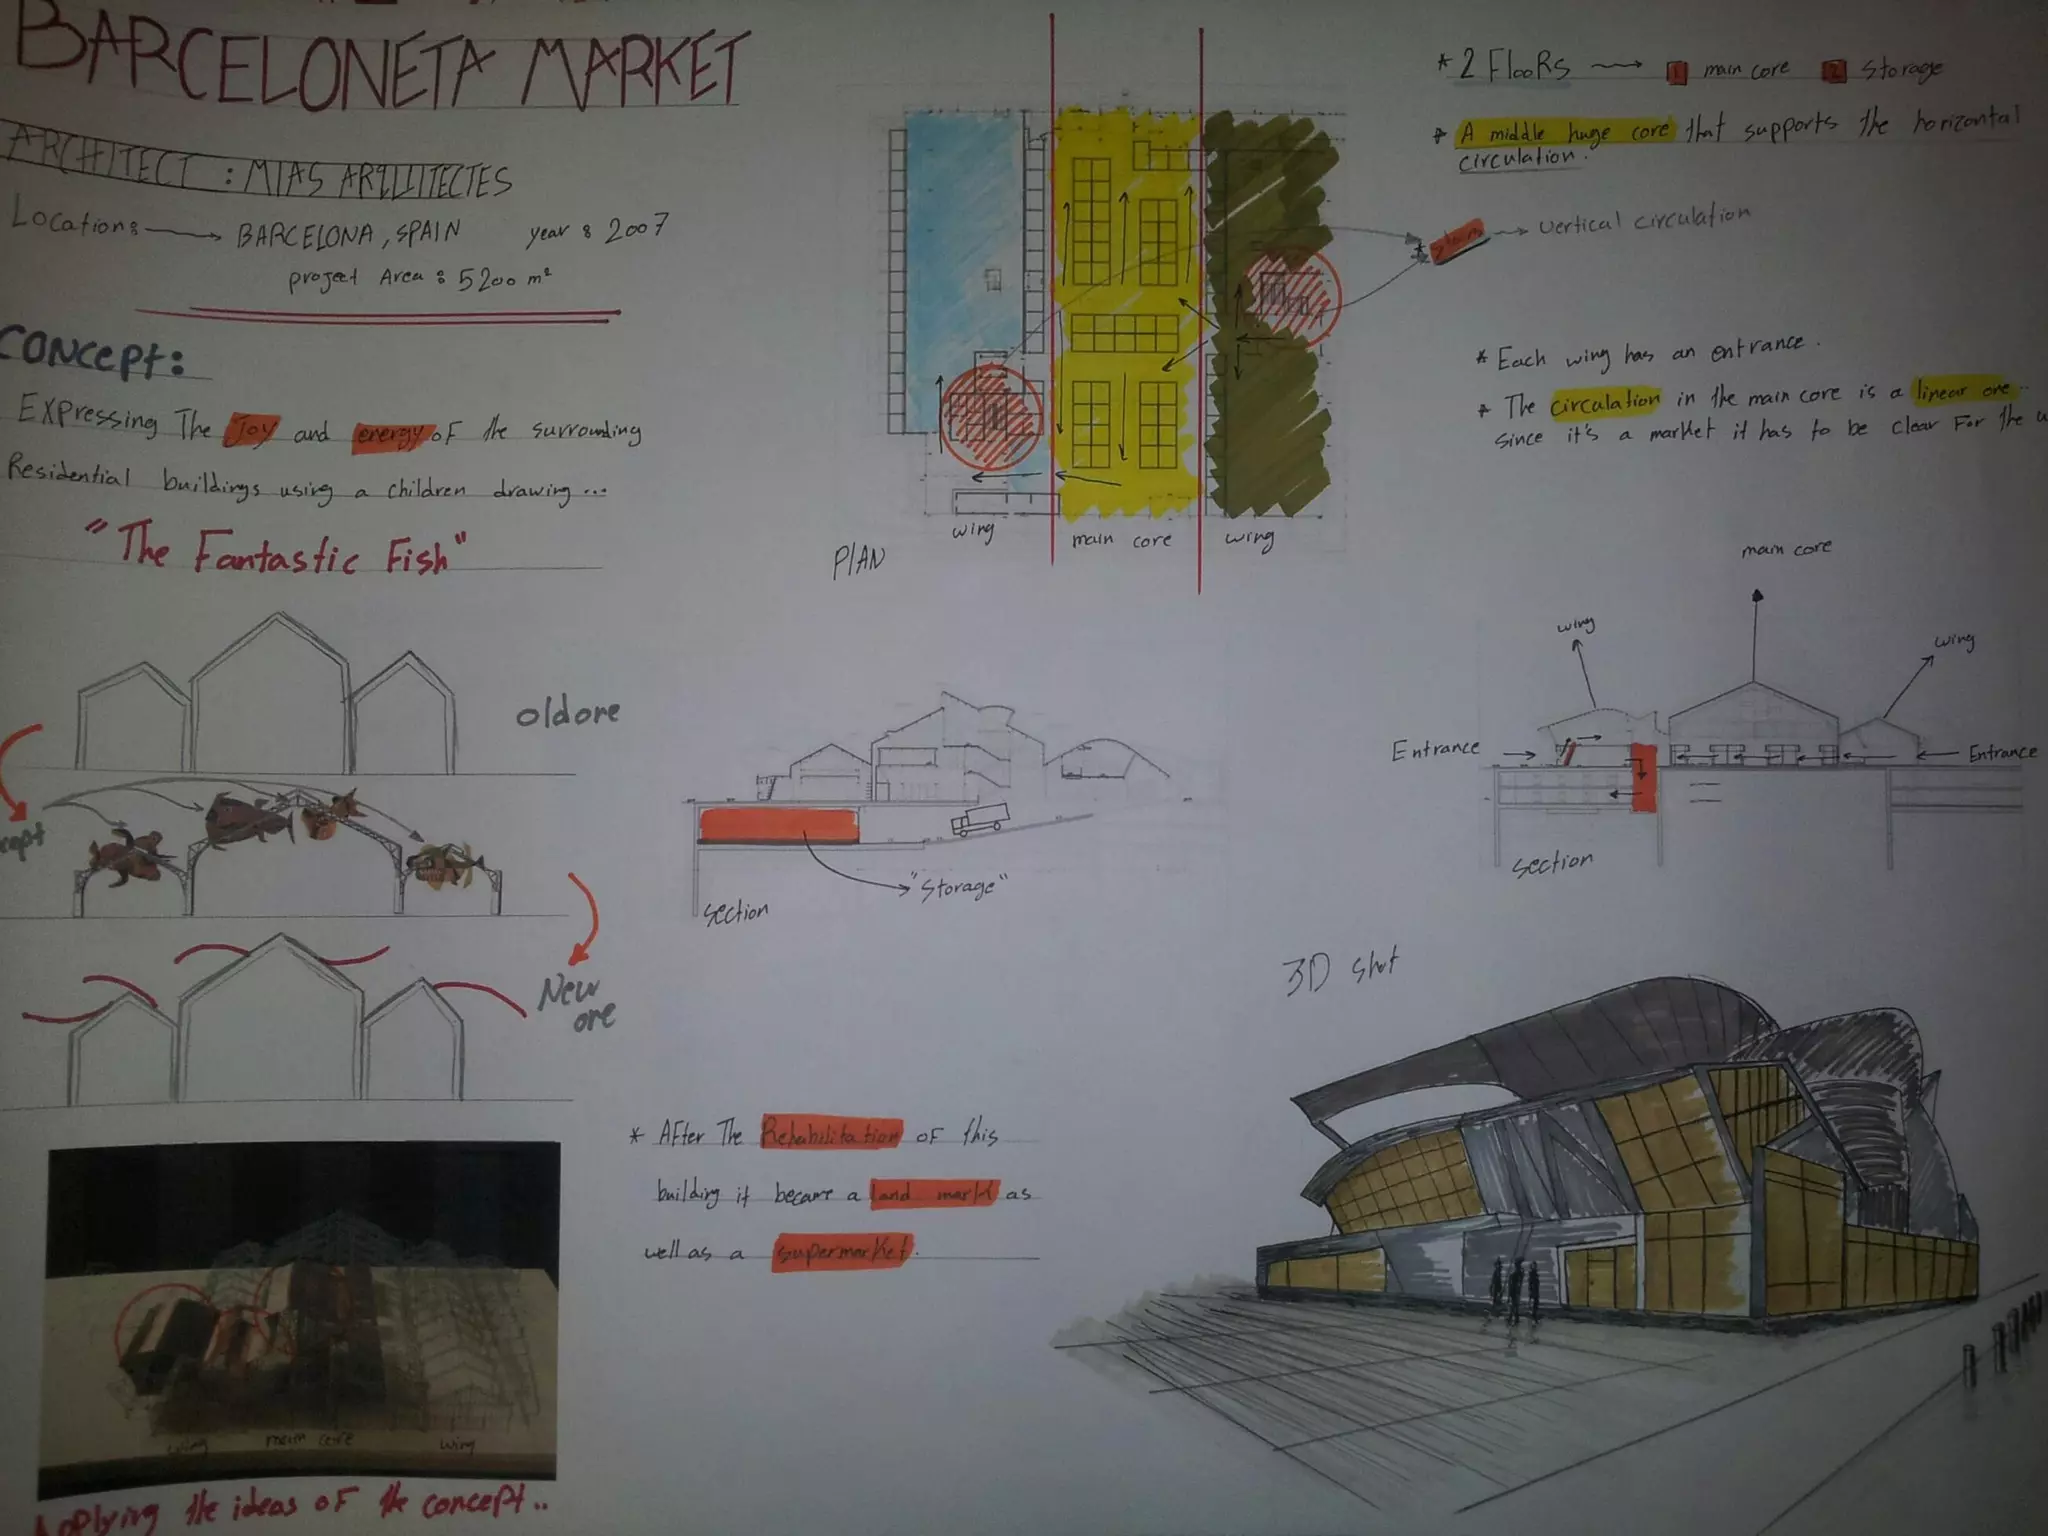 BARCELONETA MARKET
ARCHITECT : MIAS ARQUITECTES
Location: BARCELONA, SPAIN year : 2007
project Area : 5200 m²
CONCEPt:
Expressing The Joy and energy of the surrounding
Residential buildings using a children drawing...
"The Fantastic Fish"
old ore
cept
New
ore
wing main core wing
Applying the ideas of the concept..
PLAN
wing main core wing
* 2 FlooRs 1 main core 2 storage
* A middle huge core that supports the horizontal
circulation.
* stairs vertical circulation
* Each wing has an entrance.
* The circulation in the main core is a linear one..
since it's a market it has to be clear For the
"storage"
section
main core
wing
wing
Entrance
Entrance
section
* After The Rehabilitation of this
building it became a land mark as
well as a supermarket.
3D shot